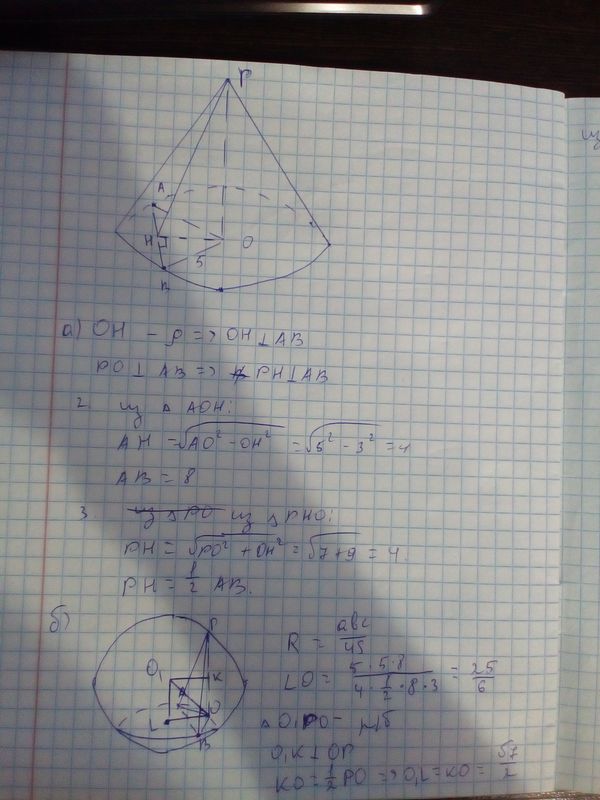 P
A
H
O
5
B
а) OH - ρ => OH ⊥ AB
PO ⊥ AB => PH ⊥ AB
2. из △ AOH:
AH = √(AO² - OH²) = √(5² - 3²) = 4
AB = 8
3. из △ PHO:
PH = √(PO² + OH²) = √(7+9) = 4.
PH = 1/2 AB.
б)
P
O₁
K
A
O
L
B
R = abc/4S
LO = 5·5·8/(4·1/2·8·3) = 25/6
△ O₁PO - р/б
O₁K ⊥ OP
KO = 1/2 PO => O₁L = KO = √7/2